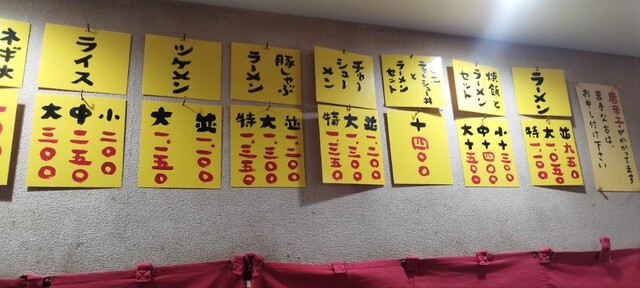 唐辛子がかかってます
苦手な方は
お申し付け下さい
ラーメン
並 九五〇
大 一.〇五〇
特 一.一〇〇
焼飯と
ラーメン
セット
小+三〇〇
中+四〇〇
大+五〇〇
ミニ
チャーシュー丼
と
ラーメンセット
+四〇〇
チャー
シュー
メン
並
大
特 一.三五〇
豚しゃぶ
ラーメン
並 一.二〇〇
大 一.三〇〇
特 一.三五〇
ツケメン
並
大
ライス
小 二〇〇
中 二五〇
大 三〇〇
ネギ大